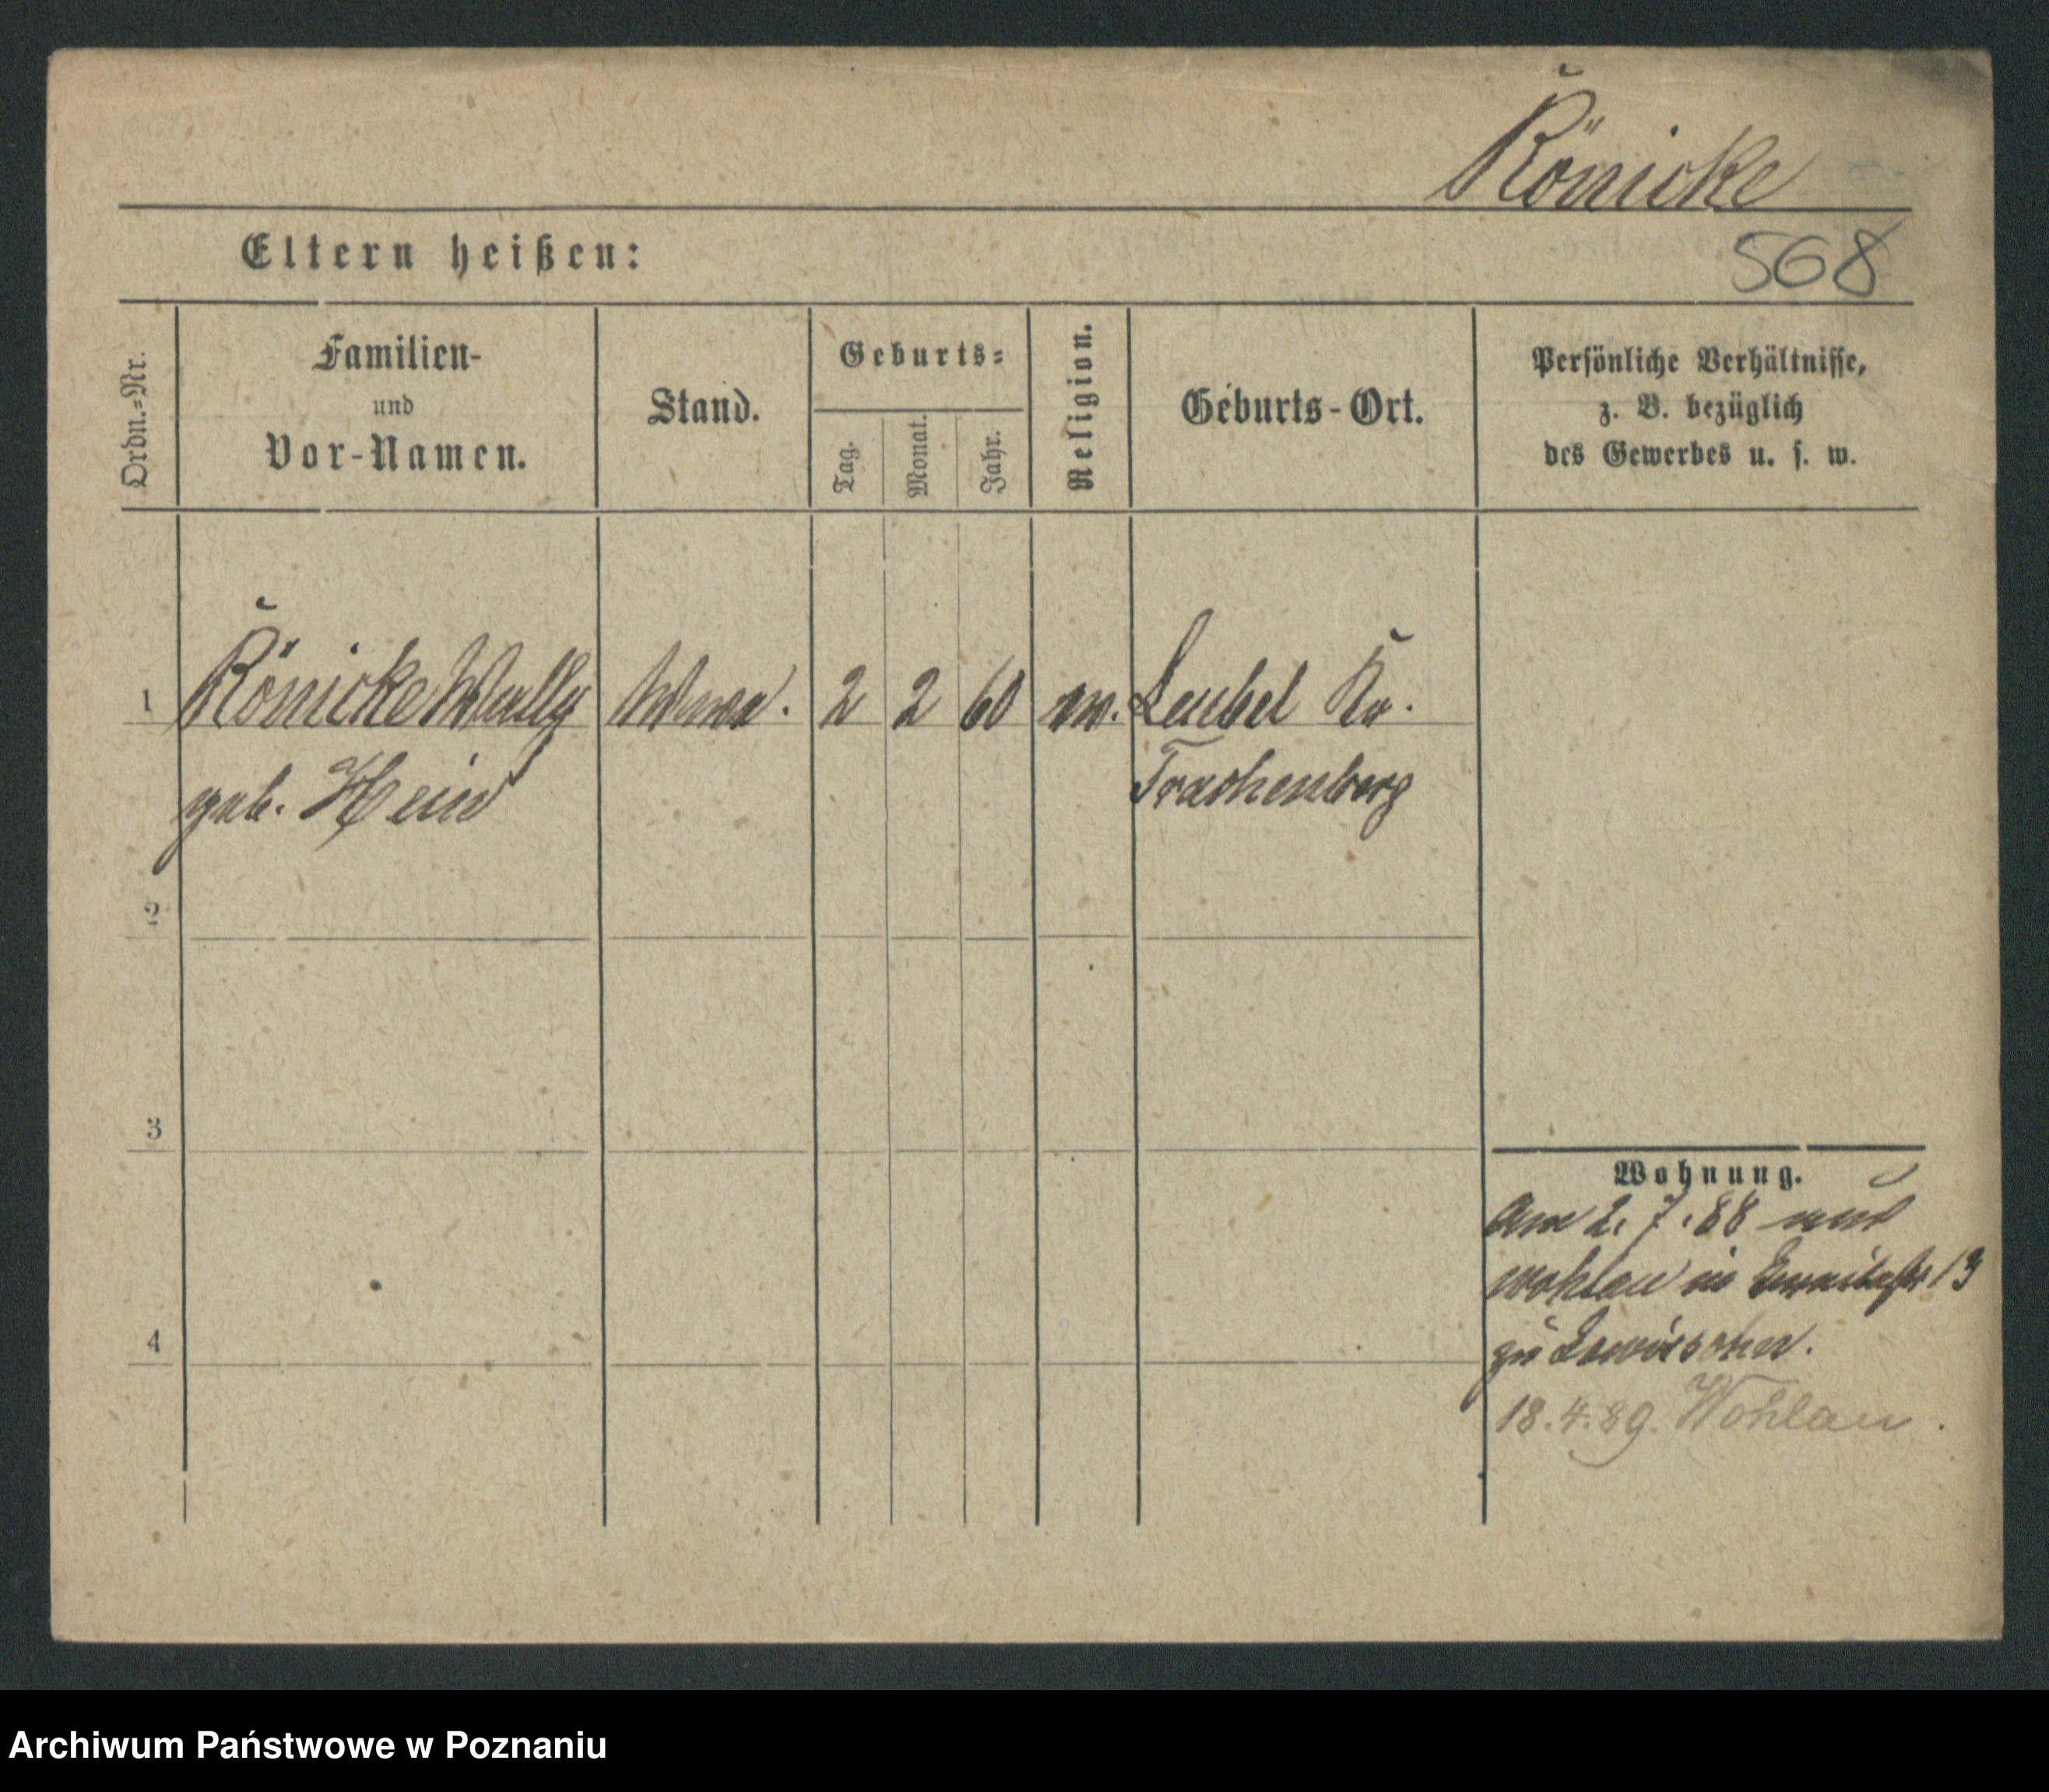 Rönicke
Eltern heißen:
568
Ordn.=Nr.
Familien-
und
Vor-Namen.
Stand.
Geburts=
Tag.
Monat.
Jahr.
Religion.
Geburts-Ort.
Persönliche Verhältnisse,
z. B. bezüglich
des Gewerbes u. s. w.
1 Rönicke Wally 2 2 60 ev. Leubel Kr.
geb. Hein Trachenberg
2
3
4
Wohnung.
Am 2. 7. 88 aus
Wohlau in 13
zu Lewissohn.
18.4.89. Wohlau.
Archiwum Państwowe w Poznaniu